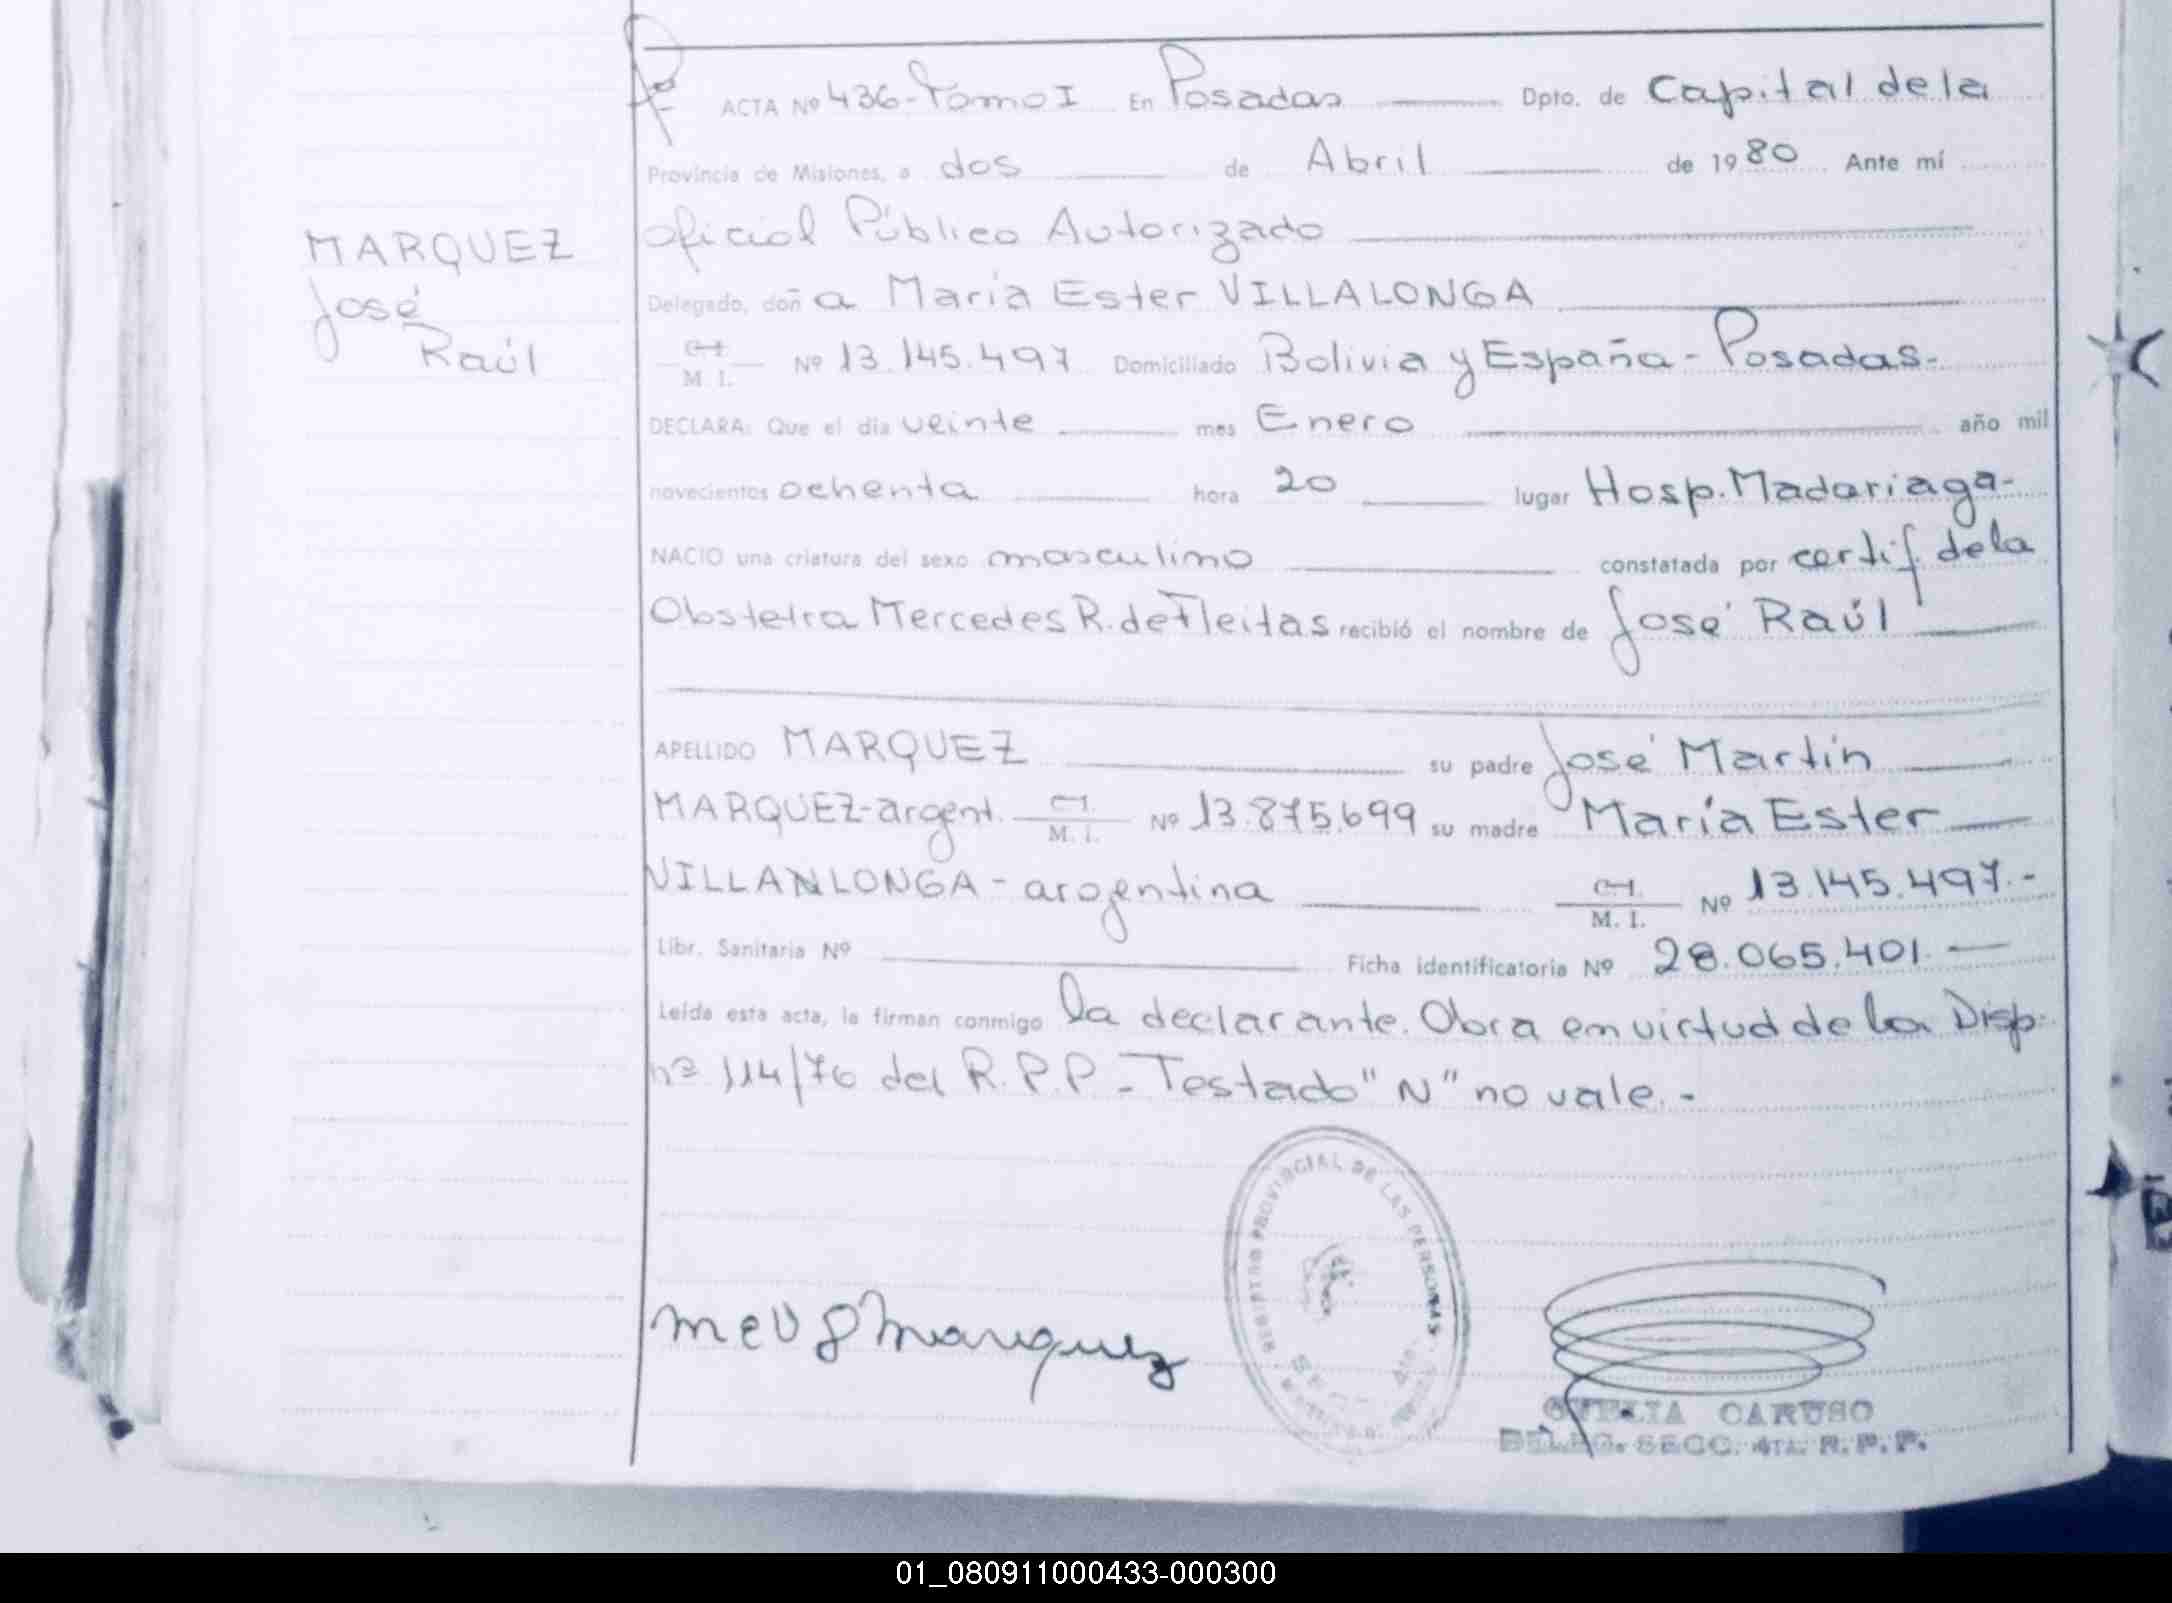 ACTA Nº 436-Tomo I En Posadas Dpto. de Capital de la
Provincia de Misiones, a dos de Abril de 1980 Ante mí
Oficial Público Autorizado
MARQUEZ
José
Raúl
Delegado, doña María Ester VILLALONGA
C.I. M. I. Nº 13.145.497 Domiciliado Bolivia y España - Posadas.-
DECLARA: Que el día veinte mes Enero año mil
novecientos ochenta hora 20 lugar Hosp. Madariaga-
NACIO una criatura del sexo masculino constatada por certif. de la
Obstetra Mercedes R. de Fleitas recibió el nombre de José Raúl
APELLIDO MARQUEZ su padre José Martín
MARQUEZ-argent. C.I. M. I. Nº 13.875.699 su madre María Ester
VILLANLONGA - argentina C.I. M. I. Nº 13.145.497.-
Libr. Sanitaria Nº Ficha identificatoria Nº 28.065.401.
Leída esta acta, la firman conmigo la declarante. Obra en virtud de la Disp.
nº 114/76 del R.P.P - Testado "N" no vale.-
PROVINCIAL DE LAS PERSONAS
Marquez
CARUSO
DELEG. SECC. 4TA. R.P.P.
01_080911000433-000300